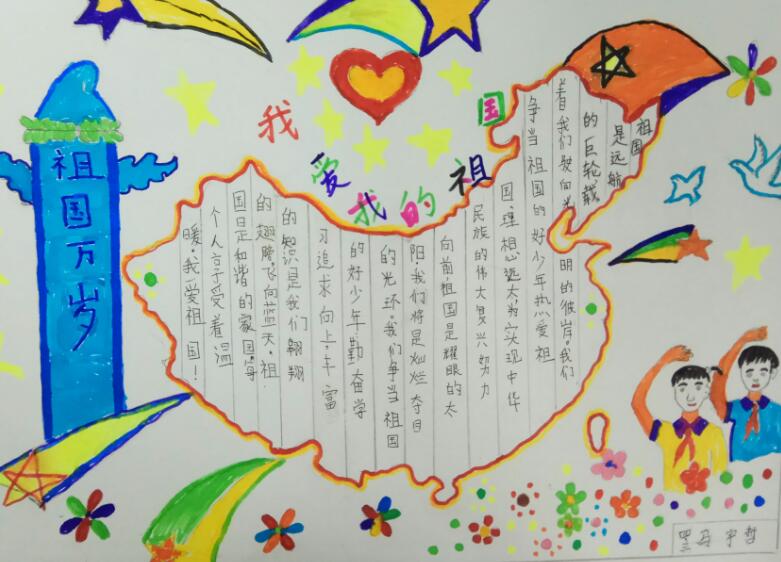 我爱我的祖国
祖国万岁
祖国
是远航
的巨轮载
着我们驶向光明的彼岸。我们
争当祖国的好少年热爱祖
国.理想远大为实现中华
民族的伟大复兴努力
向前.祖国是耀眼的太
阳.我们将是灿烂夺目
的光环.我们争当祖国
的好少年勤奋学
习追求向上.丰富
的知识是我们翱翔
的翅膀.飞向蓝天.祖
国是和谐的家园.每
个人享受着温
暖.我爱祖国！
马宇哲